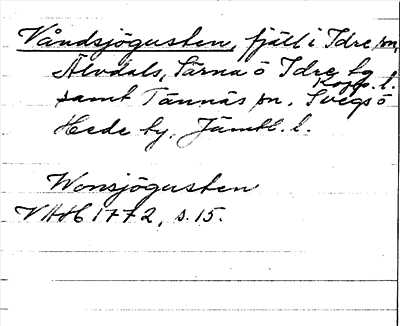 Våndsjögusten, fjäll i Idre sn,
Älvdals, Särna ö Idre tg
Kopp. l.
samt Tännäs sn. Svegs ö
Hede tg. Jämtl. l.
Wonsjögusten
VHAH 1772, s. 15.